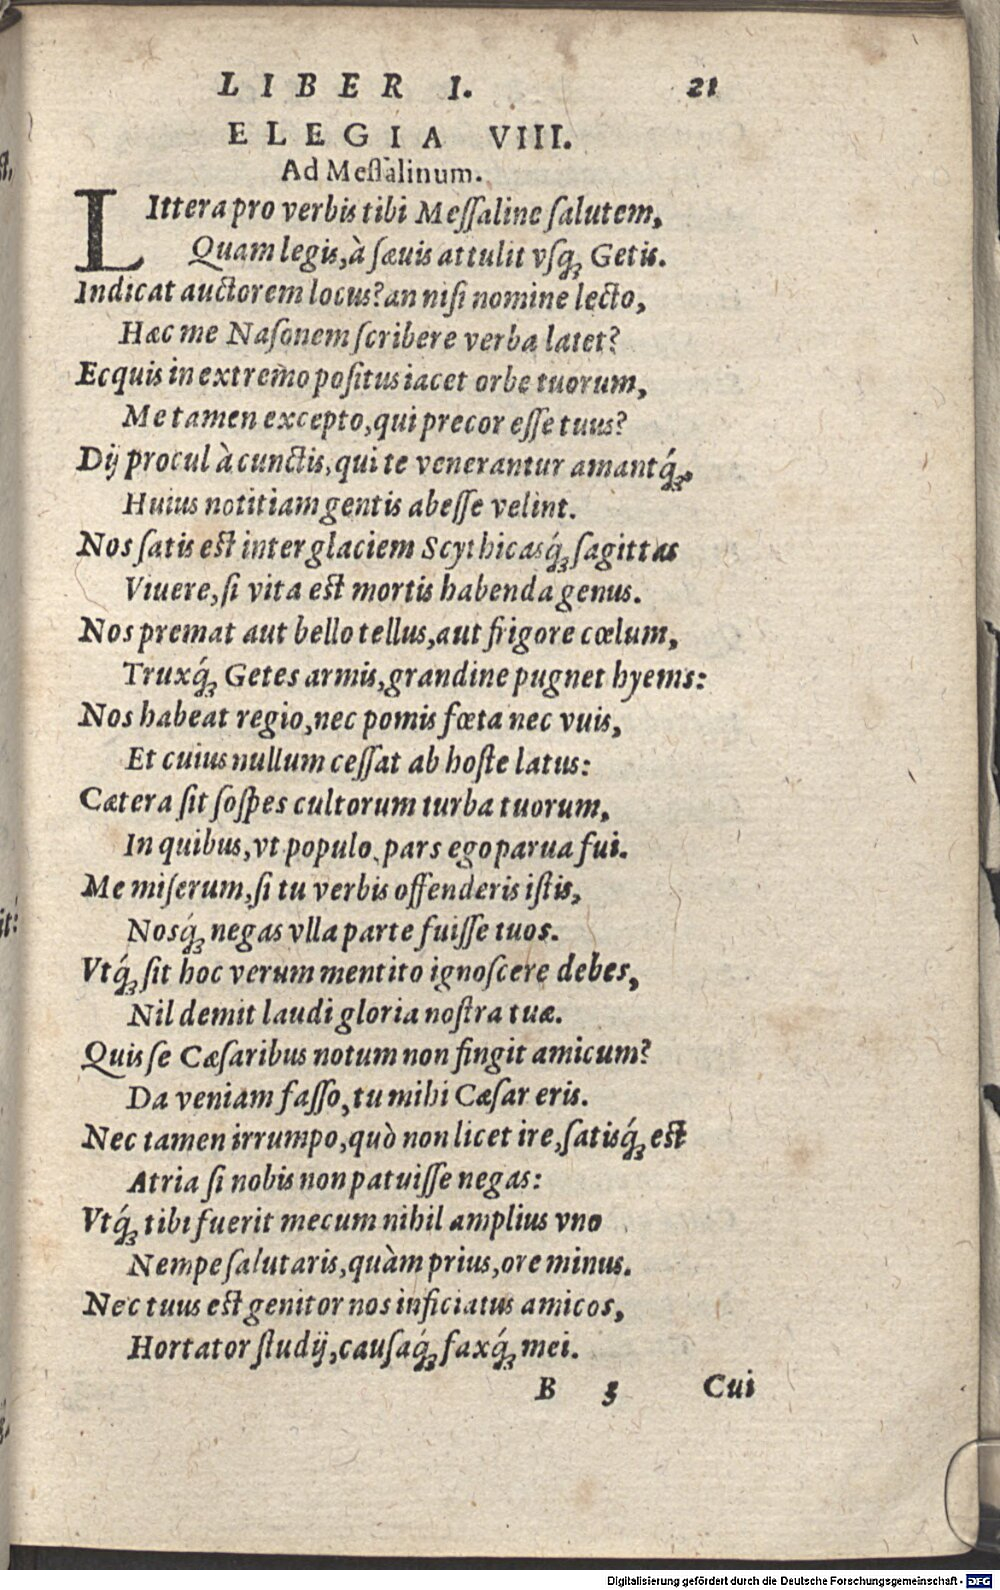 LIBER I. 21
ELEGIA VIII.
Ad Meſſalinum.
LIttera pro verbis tibi Meſſaline ſalutem,
Quam legis, à ſæuis attulit vſq́ꝫ Getis.
Indicat auctorem locus? an niſi nomine lecto,
Hæc me Naſonem ſcribere verba latet?
Ecquis in extremo poſitus iacet orbe tuorum,
Me tamen excepto, qui precor eſſe tuus?
Dij procul à cunctis, qui te venerantur amantq́ꝫ,
Huius notitiam gentis abeſſe velint.
Nos ſatis eſt inter glaciem Scythicasq́ꝫ ſagittas
Viuere, ſi vita eſt mortis habenda genus.
Nos premat aut bello tellus, aut frigore cœlum,
Truxq́ꝫ Getes armis, grandine pugnet hyems:
Nos habeat regio, nec pomis fœta nec vuis,
Et cuius nullum ceſſat ab hoſte latus:
Cætera ſit ſoſpes cultorum turba tuorum,
In quibus, vt populo, pars ego parua fui.
Me miſerum, ſi tu verbis offenderis iſtis,
Nosq́ꝫ negas vlla parte fuiſſe tuos.
Vtq́ꝫ ſit hoc verum mentito ignoſcere debes,
Nil demit laudi gloria noſtra tuæ.
Quis ſe Cæſaribus notum non fingit amicum?
Da veniam faſſo, tu mihi Cæſar eris.
Nec tamen irrumpo, quò non licet ire, ſatisq́ꝫ eſt
Atria ſi nobis non patuiſſe negas:
Vtq́ꝫ tibi fuerit mecum nihil amplius vno
Nempe ſalutaris, quàm prius, ore minus.
Nec tuus eſt genitor nos inficiatus amicos,
Hortator ſtudij, cauſaq́ꝫ faxq́ꝫ mei.
B 3 Cui
Digitalisierung gefördert durch die Deutsche Forschungsgemeinschaft - DFG